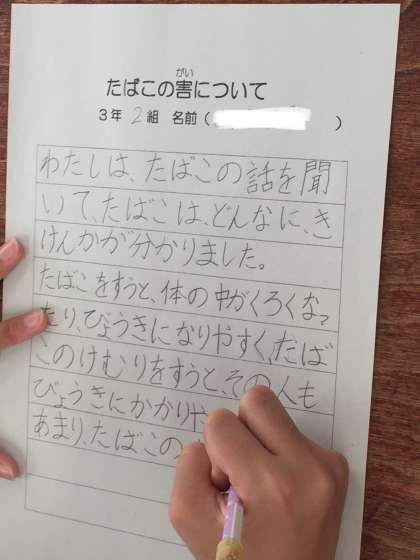 がい
たばこの害について
3年 2組 名前( )
わたしは、たばこの話を聞
いて、たばこは、どんなに、き
けんかが分かりました。
たばこをすうと、体の中がくろくなっ
たり、びょうきになりやすく、たば
このけむりをすうと、その人も
びょうきにかかりや
あまり、たばこの